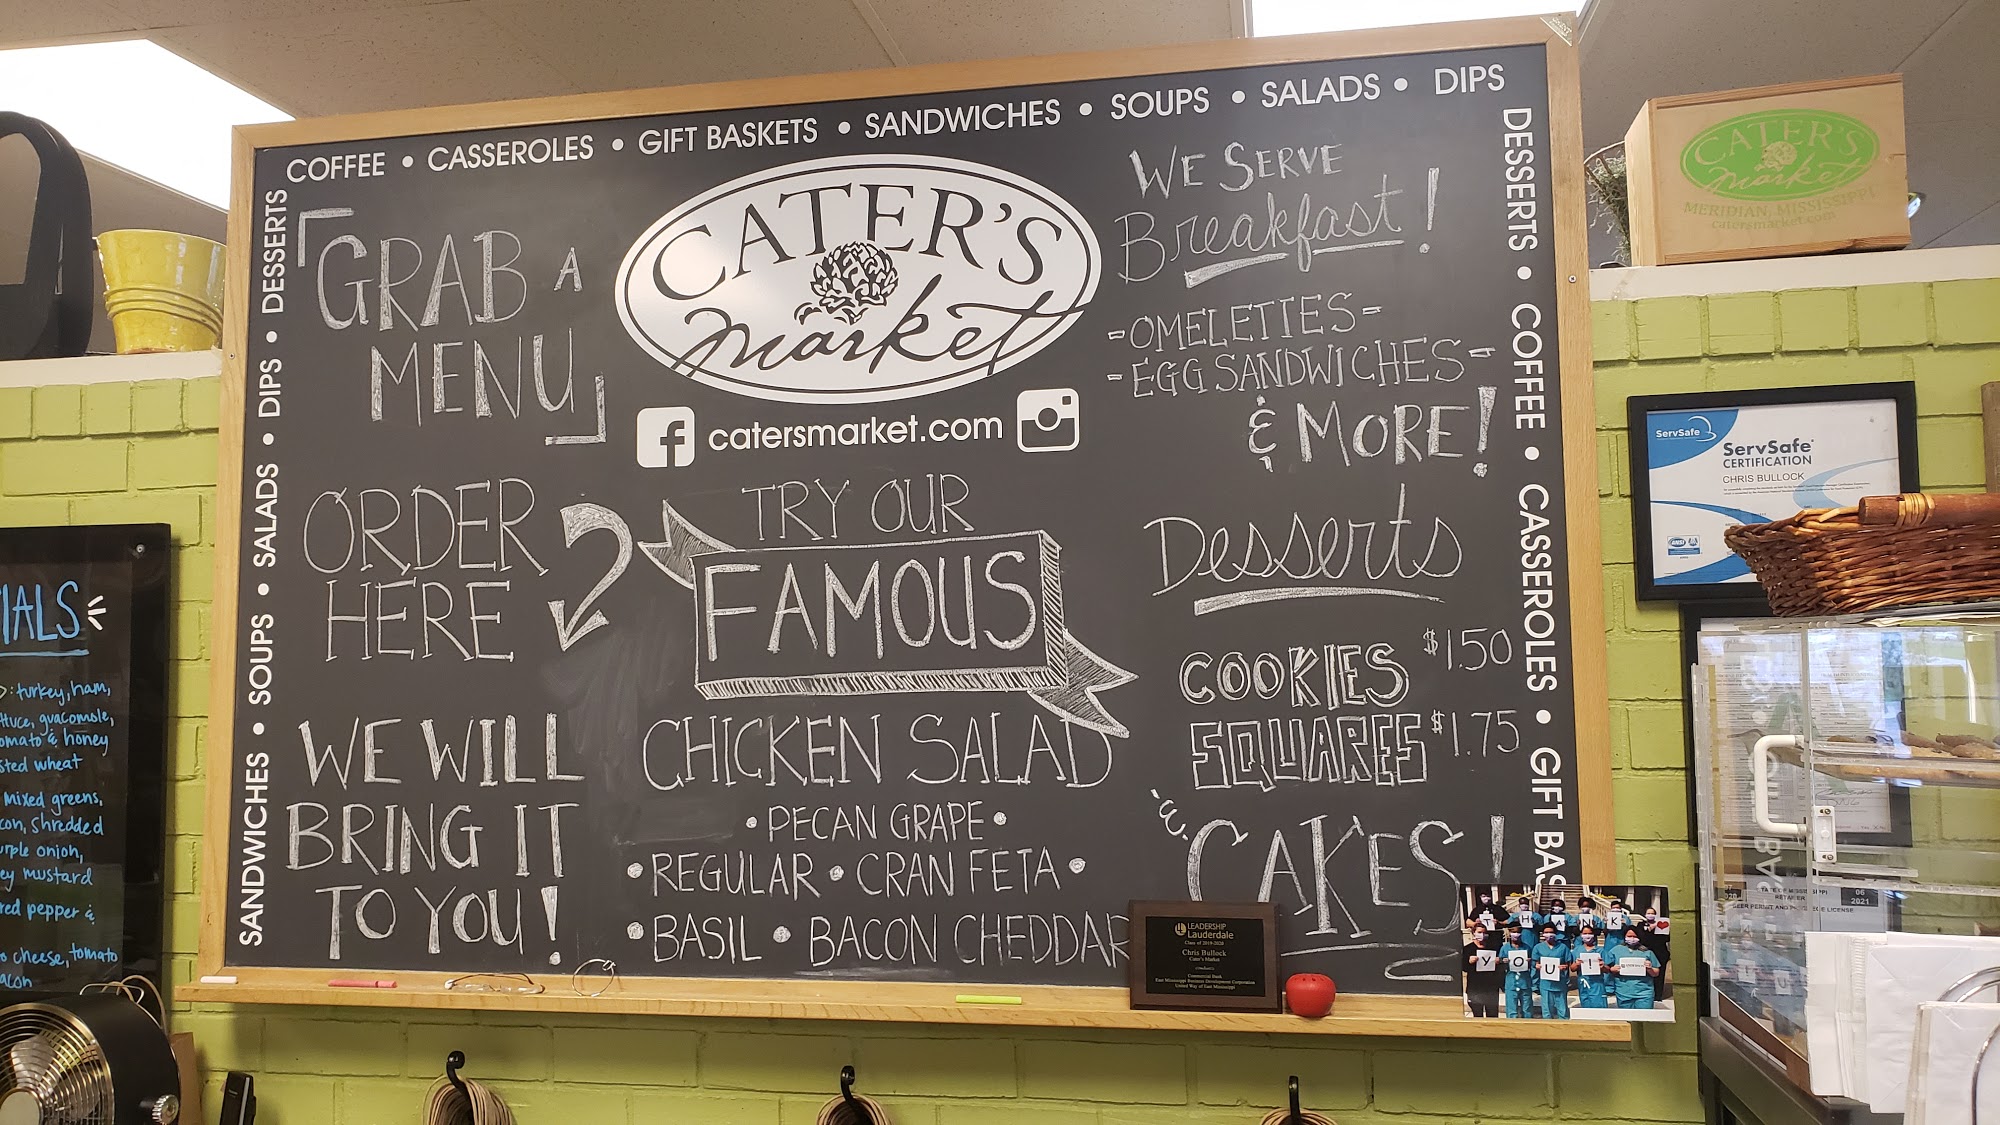 COFFEE • CASSEROLES • GIFT BASKETS • SANDWICHES • SOUPS • SALADS • DIPS
DESSERTS • COFFEE • CASSEROLES • GIFT BAS
SANDWICHES • SOUPS • SALADS • DIPS • DESSERTS
GRAB A
MENU
ORDER
HERE
WE WILL
BRING IT
TO YOU!
CATER'S
market
catersmarket.com
TRY OUR
FAMOUS
CHICKEN SALAD
• PECAN GRAPE •
• REGULAR • CRAN FETA •
• BASIL • BACON CHEDDAR
WE SERVE
Breakfast!
-OMELETTES-
-EGG SANDWICHES-
& MORE!
Desserts
COOKIES $1.50
SQUARES $1.75
-&-
CAKES!
CATER'S
market
MERIDIAN, MISSISSIPPI
catersmarket.com
ServSafe
ServSafe
CERTIFICATION
CHRIS BULLOCK
IALS
: turkey, ham,
ttuce, guacomole,
omato & honey
sted wheat
mixed greens,
con, shredded
urple onion,
ey mustard
red pepper &
o cheese, tomato
acon
LEADERSHIP
Lauderdale
Class of 2019-2020
Chris Bullock
Cater's Market
Commercial Bank
East Mississippi Business Development Corporation
United Way of East Mississippi
THANK
YOU!
STATE OF MISSISSIPPI
RETAILER
06
2021